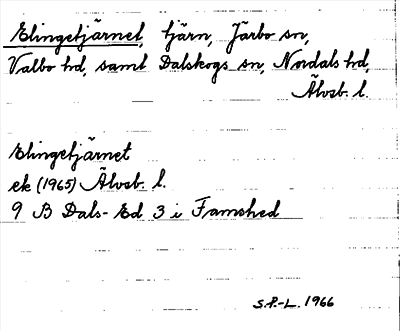 Elingetjärnet, tjärn, Järbo sn,
Valbo hd, samt Dalskogs sn, Nordals hd,
Älvsb. l.
Elingetjärnet
ek (1965) Älvsb. l.
9 B Dals-Ed 3 i Famshed
S.P.-L. 1966